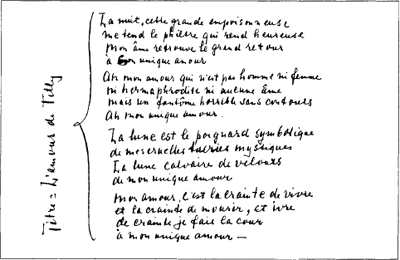 Titre = L'amour de Tilly
La nuit, cette grande empoisonneuse
me tend le philtre qui rend heureuse
mon âme retrouve le grand retour
à son unique amour
Ah mon amour qui n'est pas homme ni femme
ni hermaphrodite ni aucune âme
mais un fantôme horrible sans contours
Ah mon unique amour.
La lune est le poignard symbolique
de mes cruelles tueries mystiques
La lune calvaire de velours
de mon unique amour
Mon amour, c'est la crainte de vivre
et la crainte de mourir, et ivre
de crainte je fais la cour
à mon unique amour —